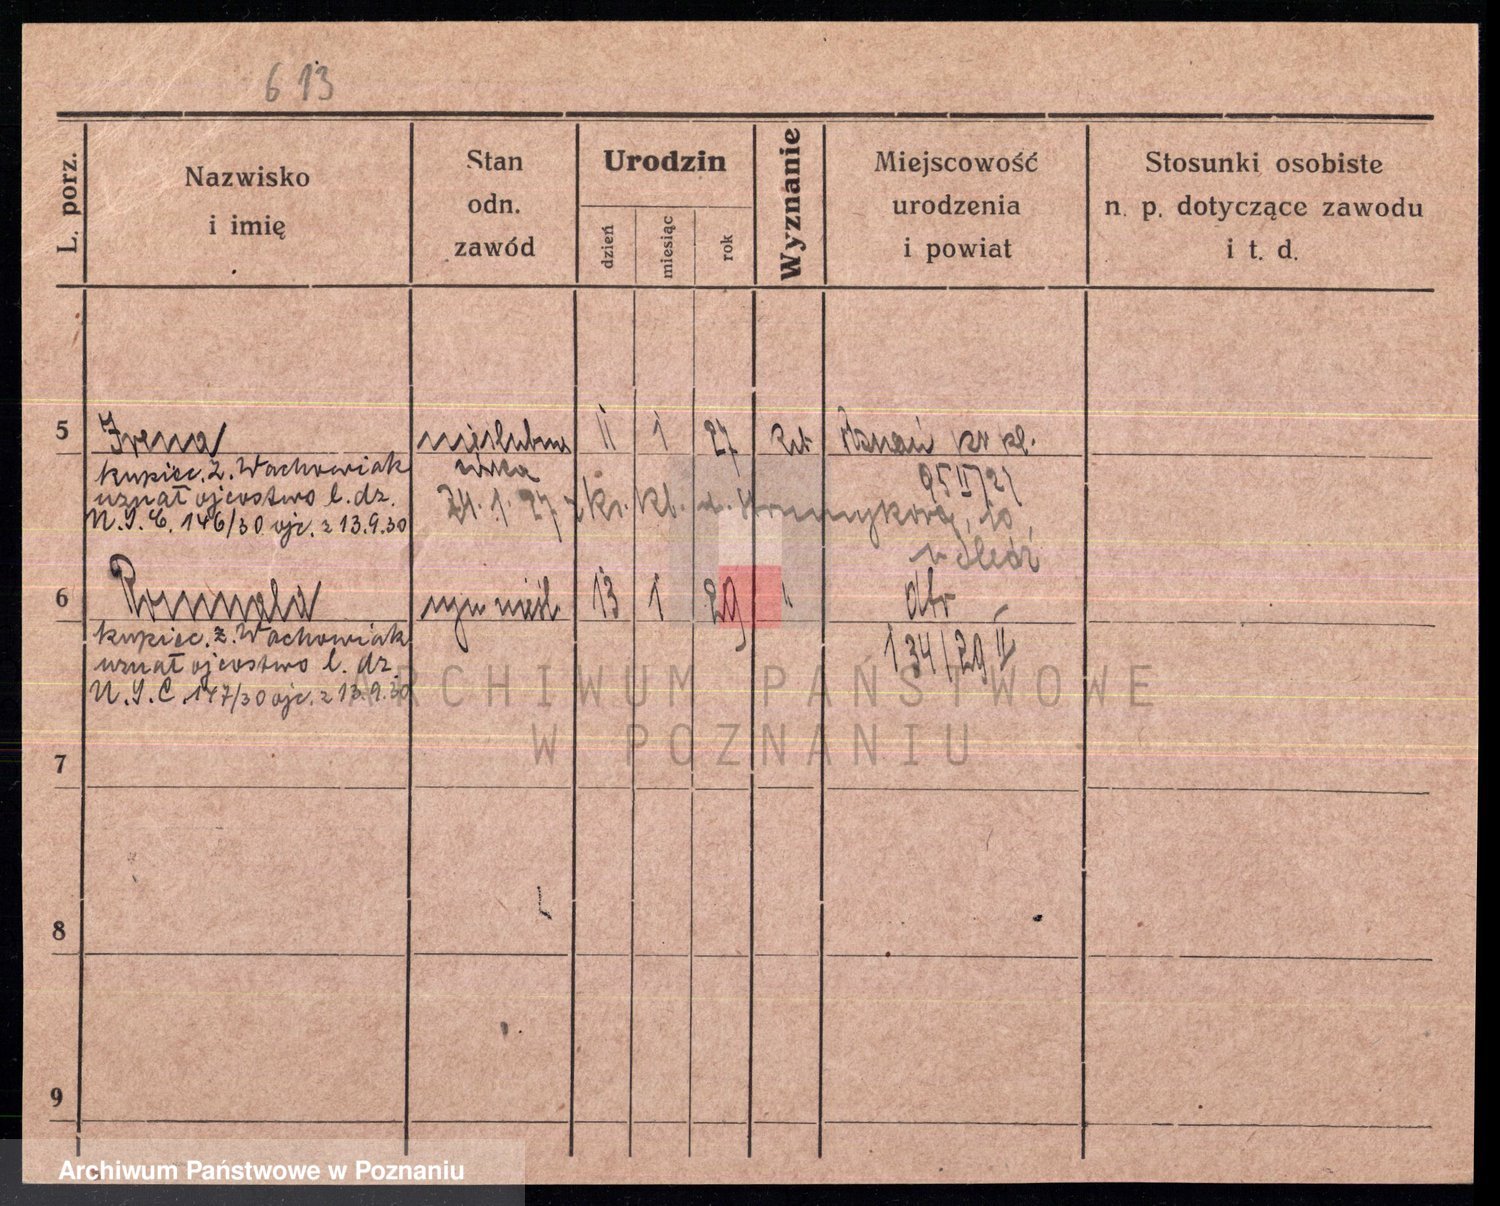 6 13
L. porz.
Nazwisko
i imię
Stan
odn.
zawód
Urodzin
dzień
miesiąc
rok
Wyznanie
Miejscowość
urodzenia
i powiat
Stosunki osobiste
n. p. dotyczące zawodu
i t. d.
5 Irena nieślubna 11 1 27 Poznań
córka
kupiec Z. Wachowiak
uznał ojcostwo l. dz.
N.S.C. 146/30 ojc. z 13.9.30
24.1.27 z kr. kl.
6 Romuald syn nieśl 13 1 29 " dtr
134/29 II
kupiec Z. Wachowiak
uznał ojcostwo l. dz.
N.S.C. 147/30 ojc. z 13.9.30
7
8
9
ARCHIWUM PAŃSTWOWE
W POZNANIU
Archiwum Państwowe w Poznaniu